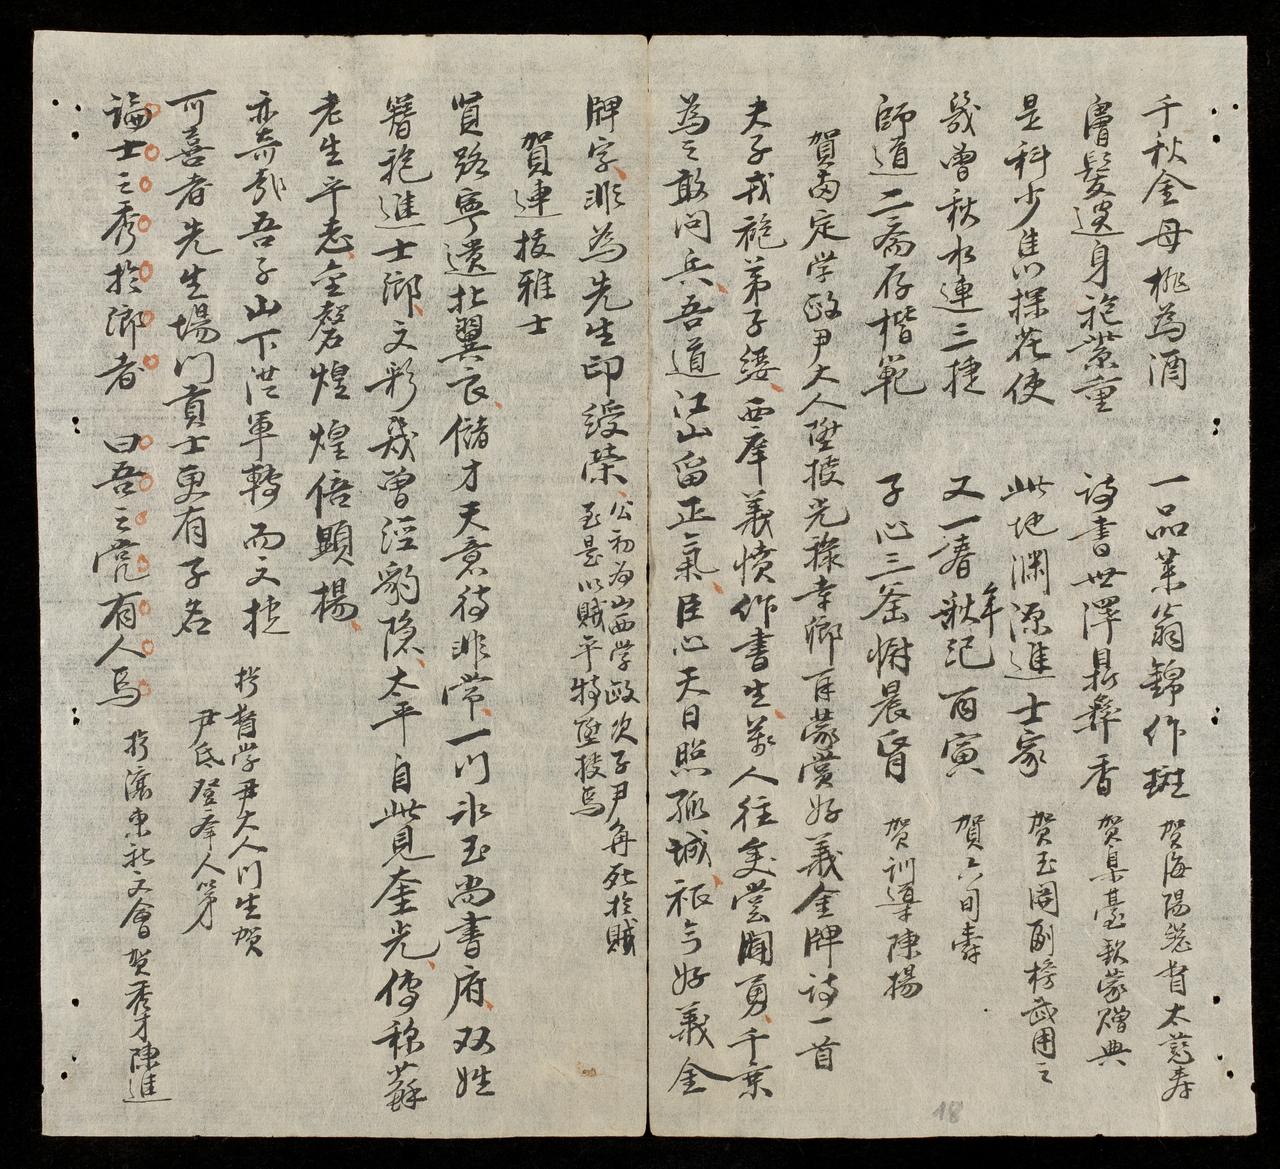 千秋金母桃為酒　一品萊翁錦作斑　賀海陽總督太慈壽
膚髮迢身袍紫重　詩書世澤鼎彝香　賀臬臺欽蒙贈典
是科少雋探花使　此地淵源進士家　賀玉岡副榜武用之
幾曾秋水連三捷　又一春秋記丙寅　年　賀六旬壽
師道二齋存楷範　子心三釜樹晨昏　賀訓導陳揚
賀南定学政尹大人陞授光祿寺卿再蒙賞好義金牌詩一首
夫子戎袍弟子緌西庠義憤作書生萬人往矣嘗聞勇千乘
為之敢問兵吾道江山留正氣臣心天日照孤城祇今好義金
牌字非為先生印綬榮公初為山西学政次子尹角死於賊
至是以賊平特陞授焉
賀連拔雅士
賢路寧遺北翼良儲才天意待非常一門冰玉尚書府双姓
簪袍進士鄉文彩幾曾淫豹隐太平自此見奎光傳称蘇
老生平志金磬煌煌倍顯揚
亦奇哉吾子山下洪軍轉而又捷　於督学尹大人門生賀
可喜者先生場門貢士更有子名　尹氐登奉人第
論士之秀於鄉者　曰吾之黨有人焉　於濂東社文會賀秀才陳進
18